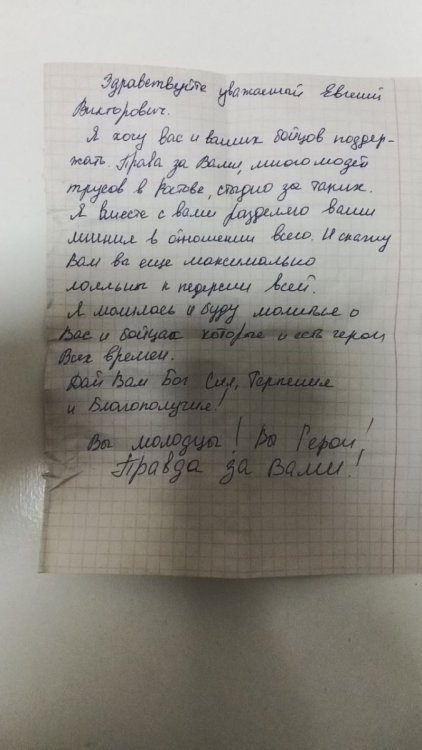 Здравствуйте уважаемый Евгений
Викторович.
Я хочу вас и ваших бойцов поддер-
жать. Права за Вами, много людей
трусов в Ростове, стыдно за таких.
Я вместе с вами разделяю ваши
мнения в отношении всего. И скажу
Вам вы еще максимально
лояльны к педерсии всей.
Я молюсь и буду молиться о
Вас и бойцах которые и есть герои
Всех времен.
Дай Вам Бог Сил, Терпения
и Благополучия!
Вы молодцы! Вы Герои!
Правда за Вами!